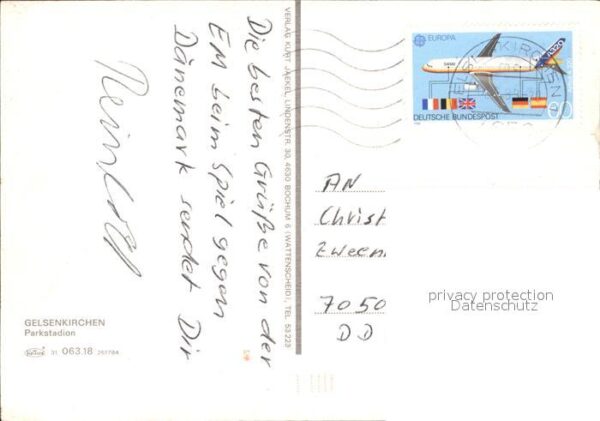 Die besten Grüße von der
EM beim Spiel gegen
Dänemark sendet Dir
GELSENKIRCHEN
Parkstadion
31 063.18
VERLAG KURT JAEKEL, LINDENSTR. 30, 4630 BOCHUM 6 (WATTENSCHEID), TEL. 53223
EUROPA
A320
DEUTSCHE BUNDESPOST
60
AN
Christ
7050
DD
privacy protection
Datenschutz